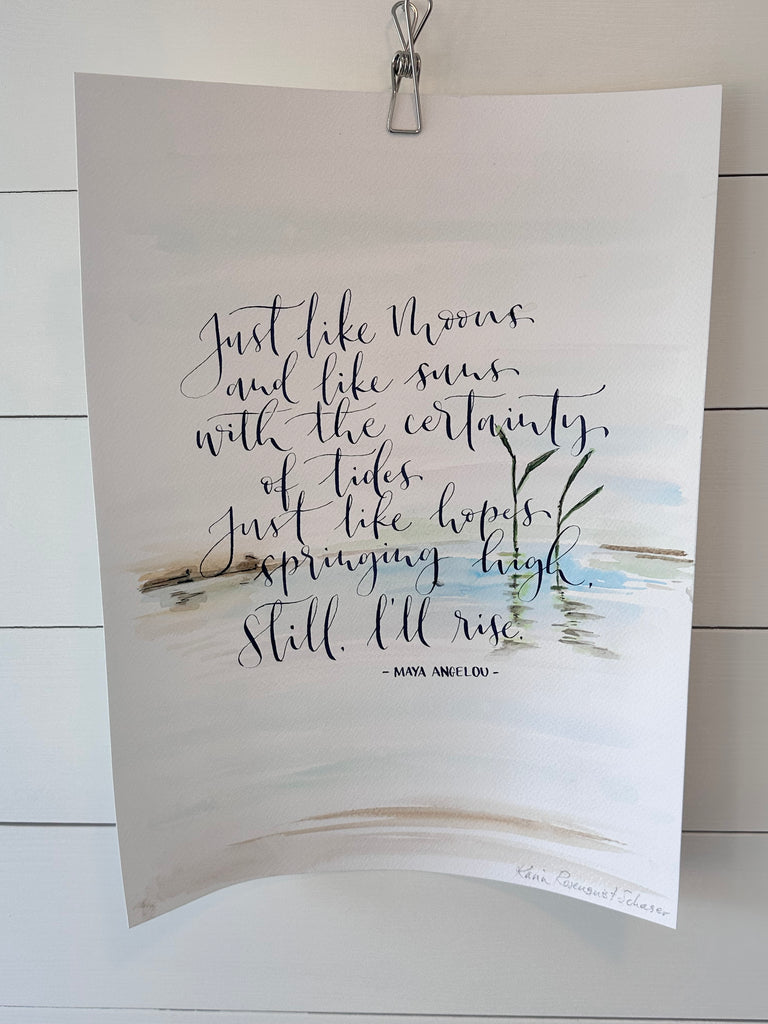 Just like Moons
and like suns
with the certainty
of tides
Just like hopes
springing high,
Still, I'll rise.
- MAYA ANGELOU -
Karin